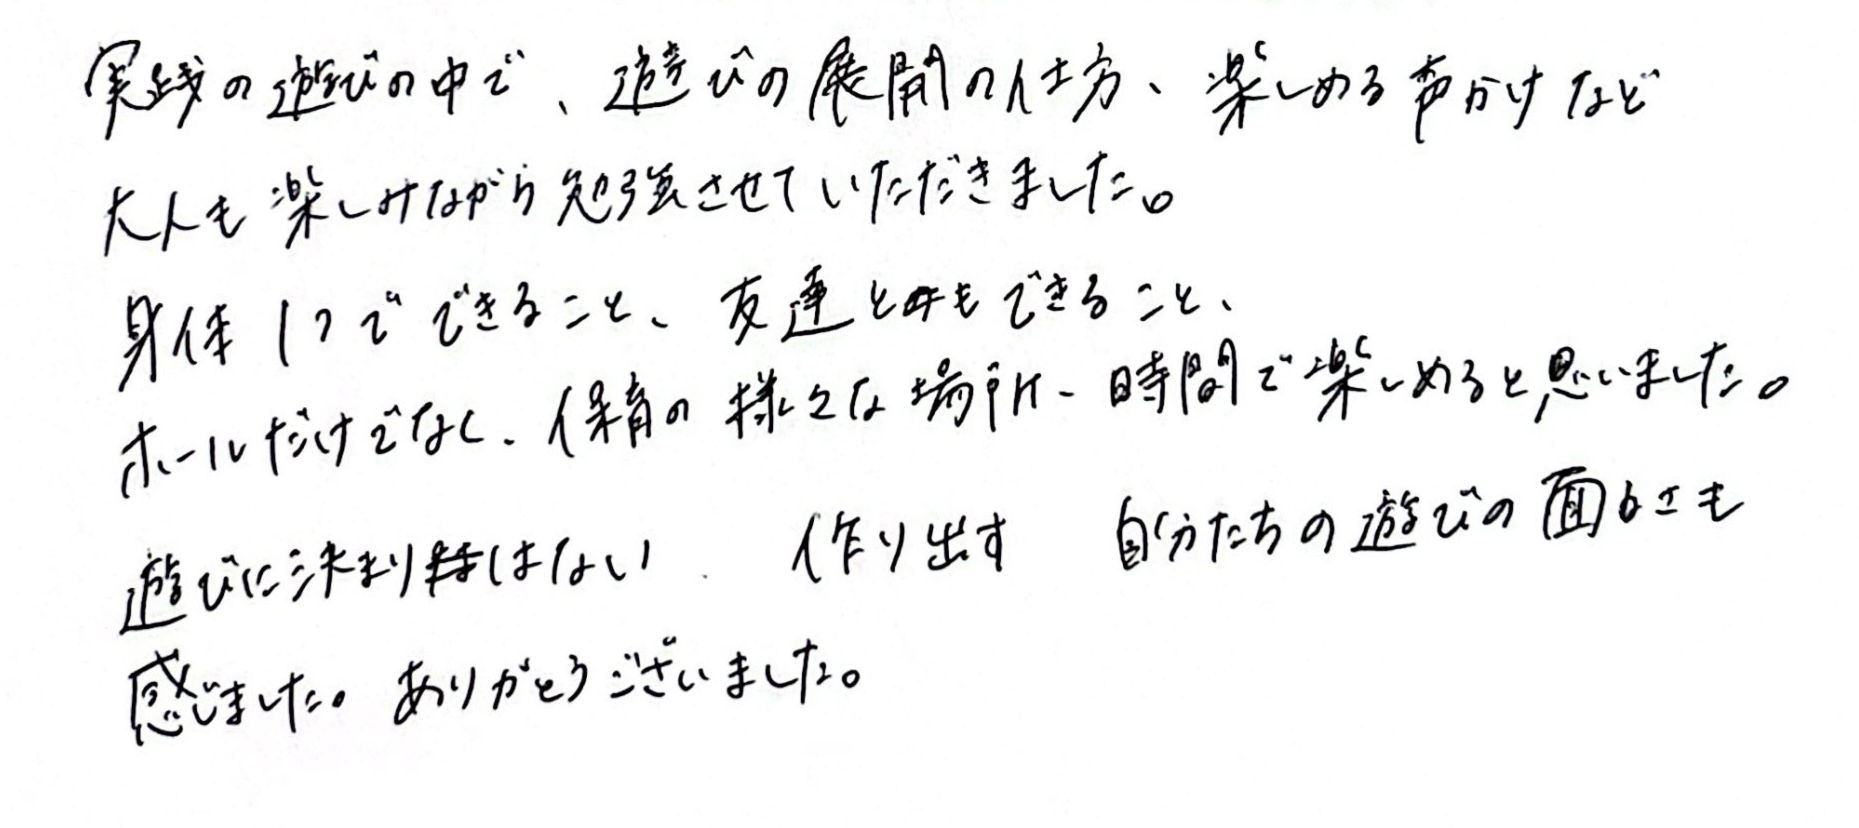 実践の遊びの中で、遊びの展開の仕方、楽しめる声かけなど
大人も楽しみながら勉強させていただきました。
身体1つでできること、友達ともできること、
ホールだけでなく、保育の様々な場所、時間で楽しめると思いました。
遊びに決まりはない 作り出す 自分たちの遊びの面白さも
感じました。ありがとうございました。